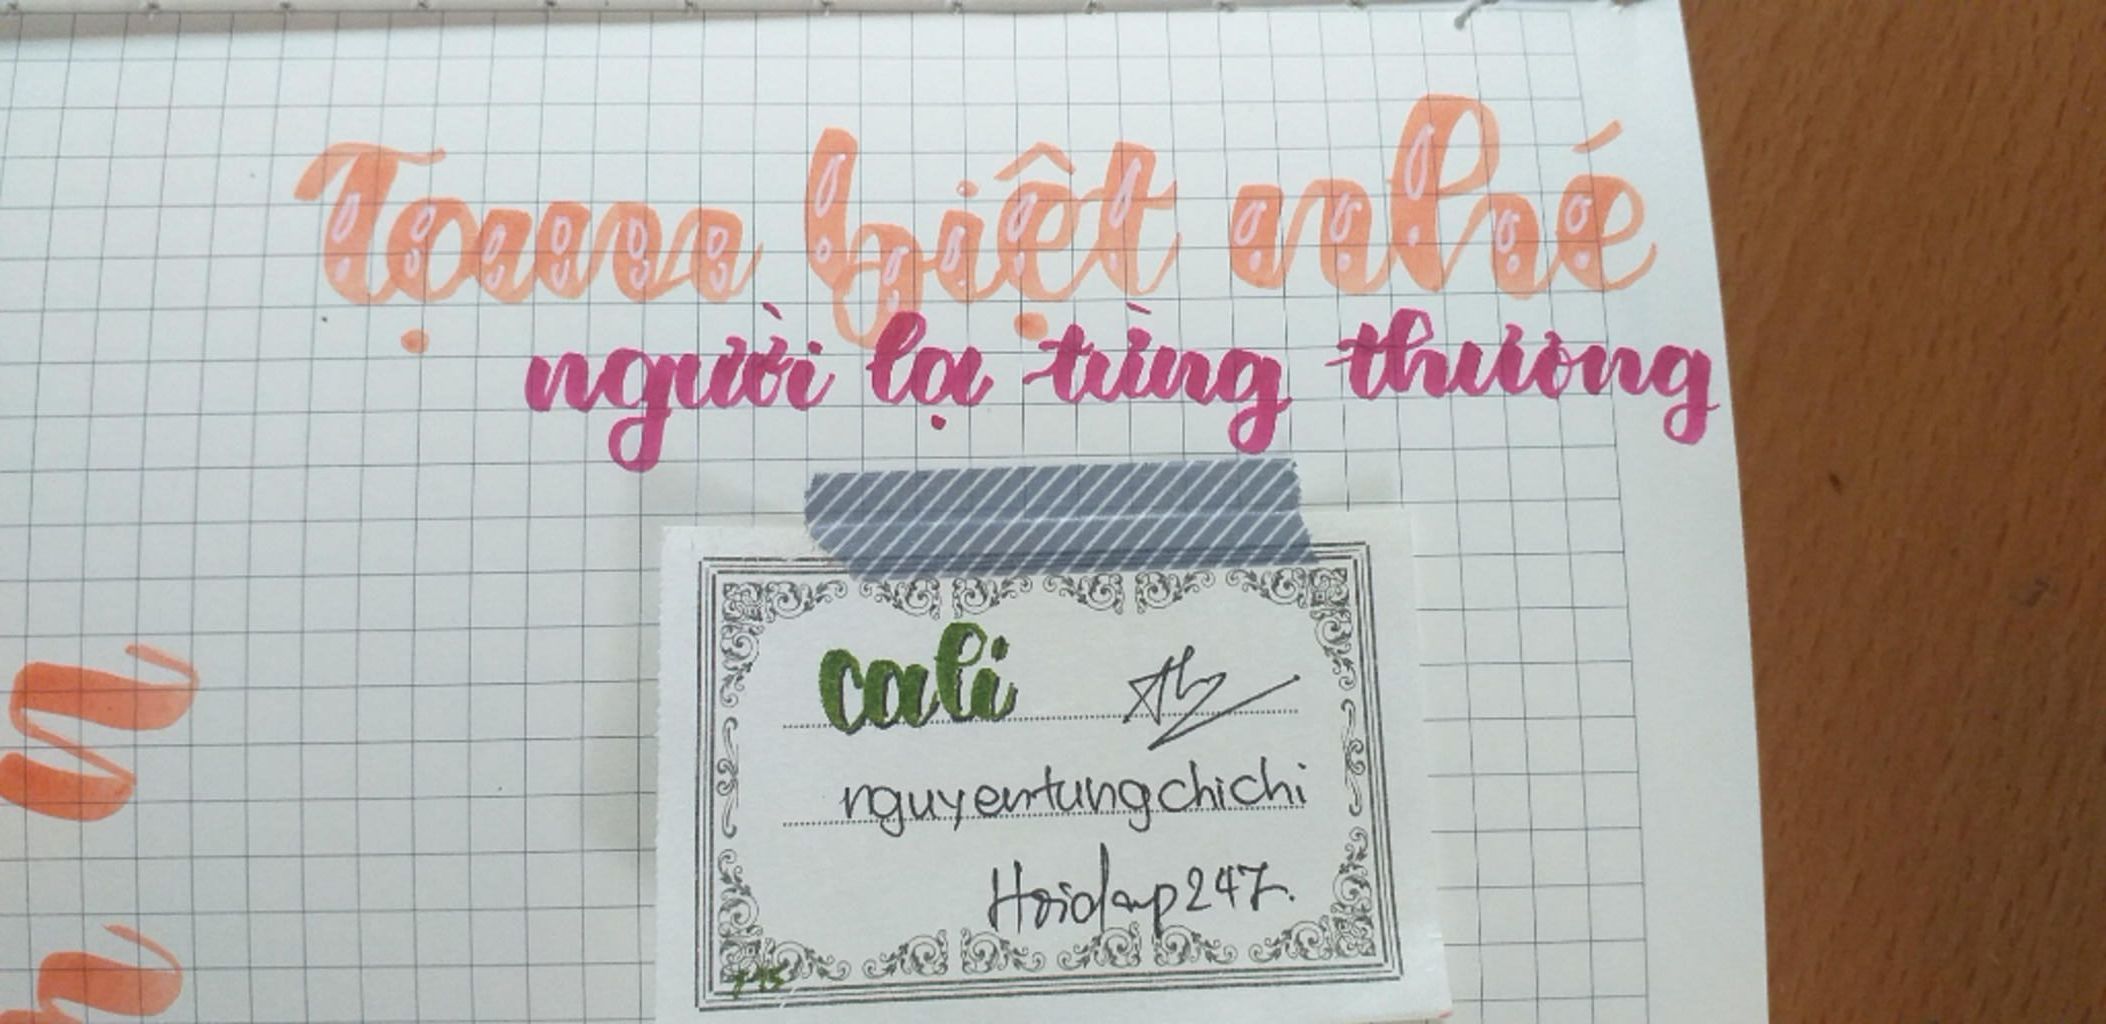 Tạm biệt nhé
người lạ từng thương
cali
nguyentungchichi
Hoidap247.